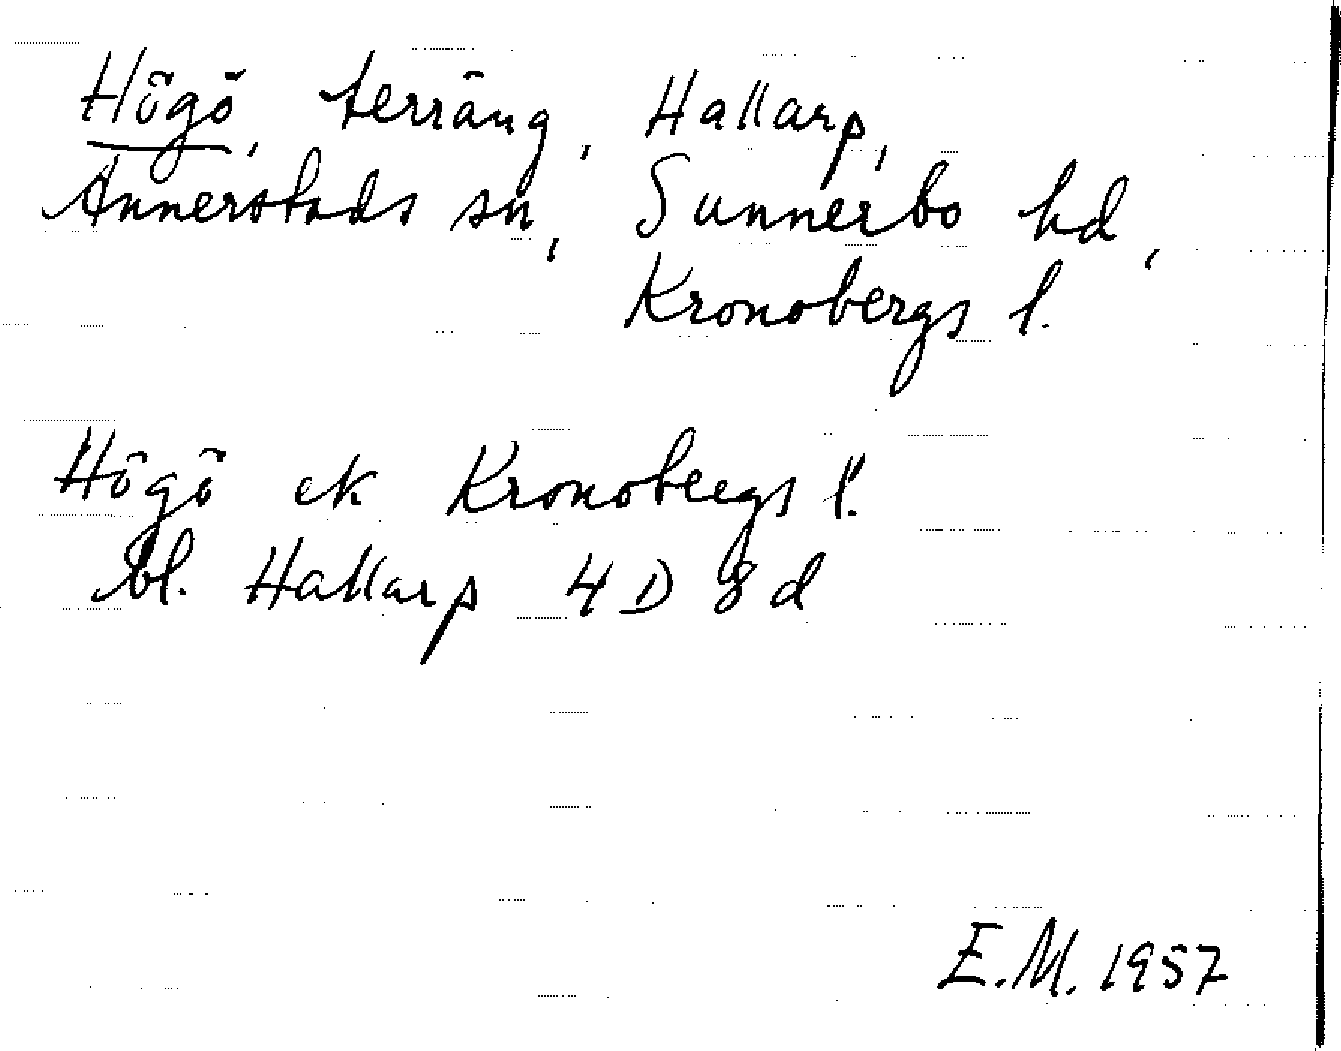 Högö, terräng, Hallarp,
Annerstads sn, Sunnerbo hd,
Kronobergs l.
Högö ek Kronobergs l.
bl. Hallarp 4 D 8 d
E.M. 1957